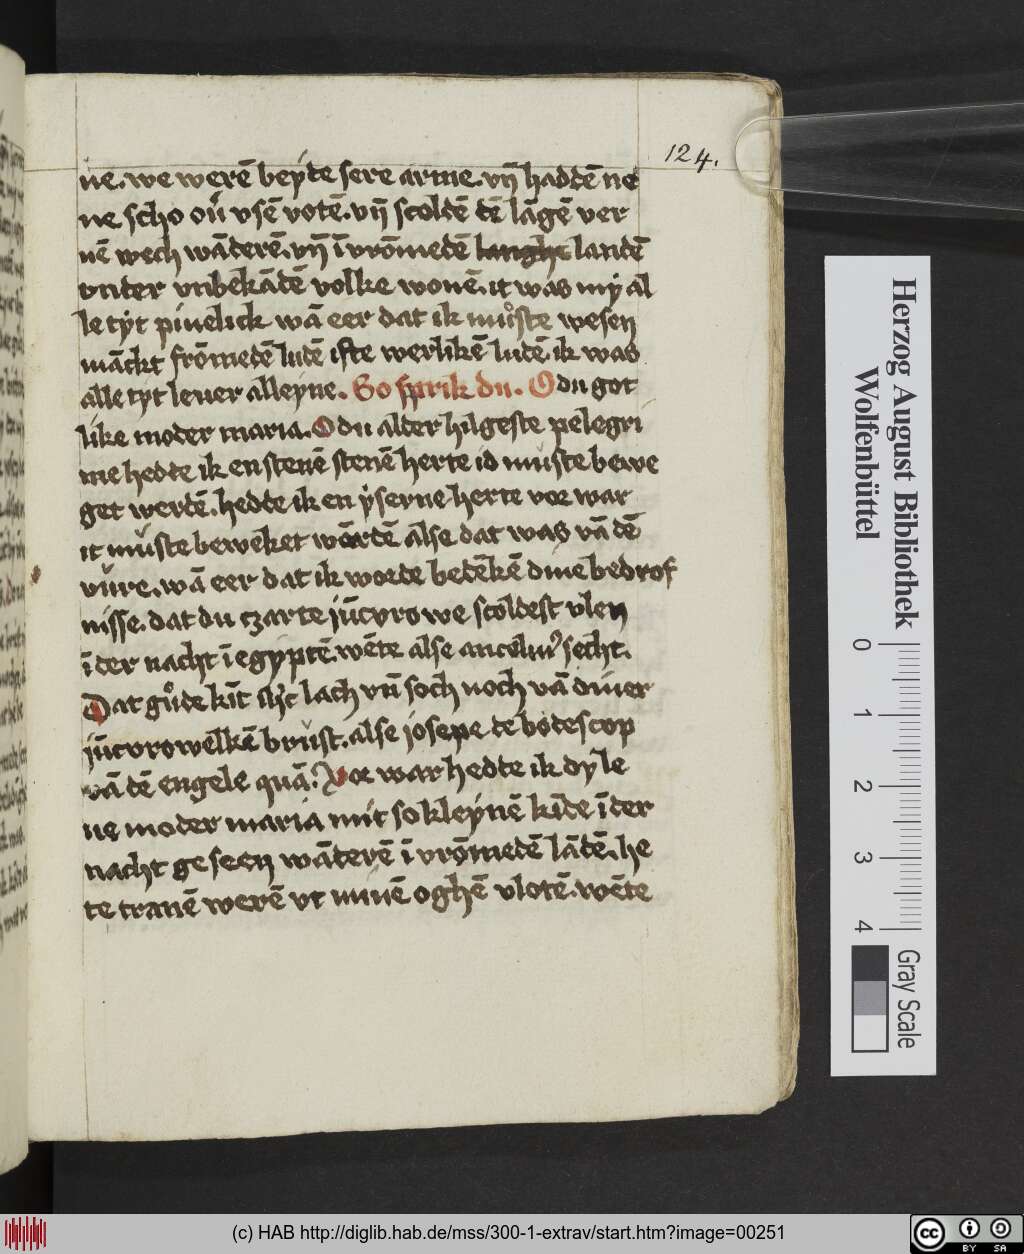 124.
ne. we werē beyde sere arme. vn̄ haddē ne
ne scho ou̇ vsē votē. vn̄ scoldē dē lāgē ver
nē wech wāderē. vn̄ ī vrōmedē langhe landē
vnter vnbekādē volke wonē. it was my al
le tyt pinelick wā eer dat ik můste wesen
māckt frōmedē ludē ifte werlikē ludē. ik was
alle tyt leuer alleyne. So sprik du. O du got
like moder maria. O du alder hilgeste pelegri
me hedde ik en stenē stenē herte id muste bewe
get werdē. hedde ik en yserne herte vor war
it muste beweket wordē alse dat was vā dē
vůre. wā eer dat ik worde bedēkē dine bedrof
nisse. dat du czarte jūcvrowe scoldest vlen
ī der nacht ī egyptē. wēte alse ancelmꝰ secht.
Dat gůde kīt slyt lach vn̄ soch noch vā diner
jūcvrowelkē brust. alse josepe de bodescop
vā dē engele quā. Vor war hedde ik dy le
ue moder maria mit so kleynē kīde ī der
nacht geseen wāderē ī vrōmedē lādē. he
te tranē werē vt minē oghē vlotē. wēte
Herzog August Bibliothek
Wolfenbüttel
0 1 2 3 4
Gray Scale
(c) HAB http://diglib.hab.de/mss/300-1-extrav/start.htm?image=00251
cc BY SA